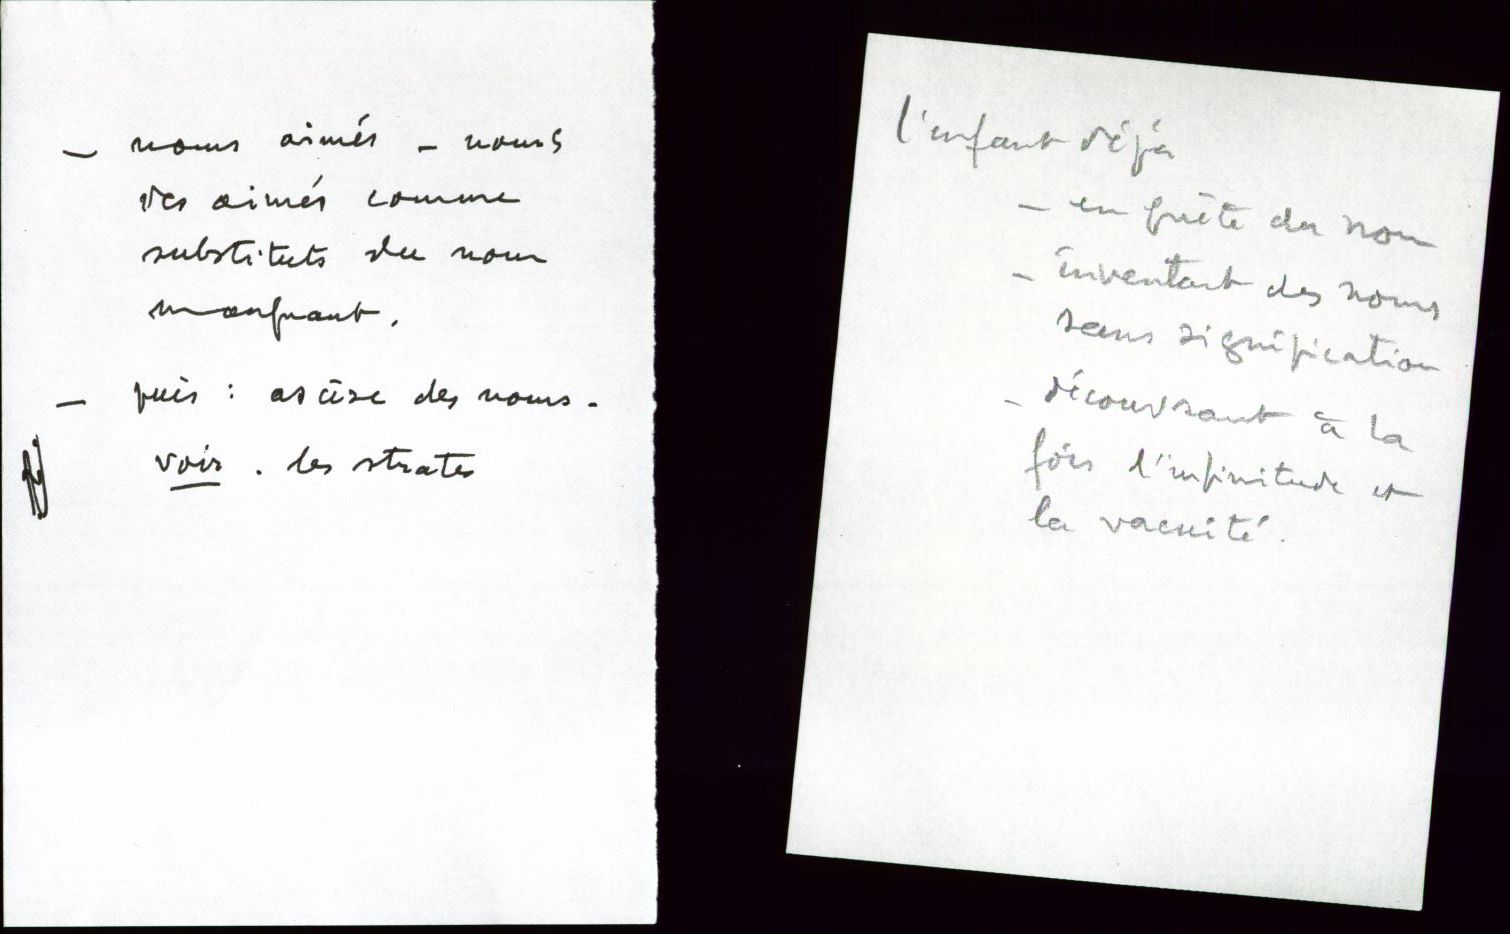 — noms aimés – noms
des aimés comme
substituts du nom
manquant.
— puis : ascèse des noms.
voir . les strates
l'enfant déjà
– en quête du nom
– inventant des noms
sans signification
– découvrant à la
fois l'infinitude et
la vacuité.